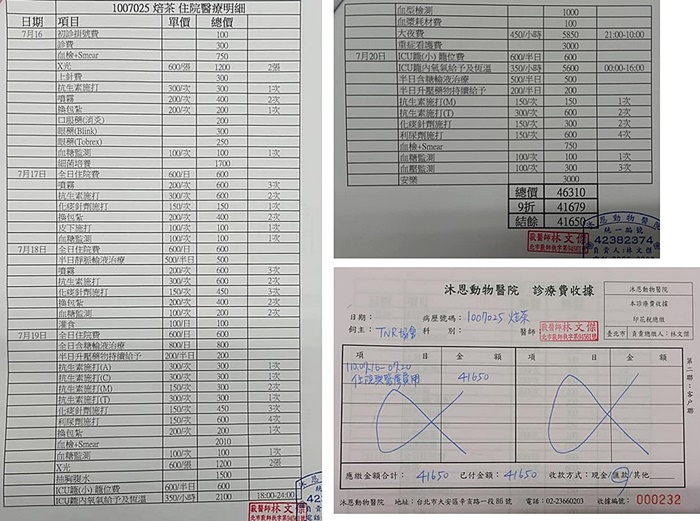 1007025 焙茶 住院醫療明細
日期 項目 單價 總價
7月16 初診掛號費 100
診費 300
血檢+Smear 750
X光 600/張 1200 2張
上針費 300
抗生素施打 300/次 300 1次
噴霧 200/次 400 2次
換包紮 200/次 200 1次
口眼藥(消炎) 200
眼藥(Blink) 300
眼藥(Tobrex) 250
血糖監測 100/次 100 1次
細菌培養 1700
7月17日 全日住院費 600/日 600
噴霧 200/次 600 3次
抗生素施打 300/次 600 2次
化痰針劑施打 150/次 150 1次
換包紮 200/次 400 2次
皮下施打 100/次 100 1次
血糖監測 100/次 100 1次
7月18日 全日住院費 600/日 600
半日靜脈輸液治療 500/半日 500
噴霧 200/次 600 3次
抗生素施打 300/次 600 2次
化痰針劑施打 150/次 450 3次
換包紮 200/次 400 2次
血糖監測 100/次 200 2次
灌食 100/日 100
7月19日 全日住院費 600/日 600
全日含糖輸液治療 800/日 800
半日升壓藥物持續給予 200/半日 200
抗生素施打(A) 300/次 300 1次
抗生素施打(C) 300/次 300 1次
抗生素施打(M) 150/次 300 2次
抗生素施打(T) 300/次 300 1次
化痰針劑施打 150/次 450 3次
利尿劑施打 150/次 600 4次
換包紮 200/次 200 1次
血檢+Smear 2010
血糖監測 100/次 100 1次
X光 600/張 1200 2張
抽胸腹水 1500
ICU籠(小) 籠位費 600/半日 600
ICU籠內氧氣給予及恆溫 350/小時 2100 18:00-24:00
獸醫師 林文傑
血型檢測 1000
血漿耗材費 100
大夜費 450/小時 5850 21:00-10:00
重症看護費 3000
7月20日 ICU籠(小) 籠位費 600/半日 600
ICU籠內氧氣給予及恆溫 350/小時 5600 00:00-16:00
半日含糖輸液治療 500/半日 500
半日升壓藥物持續給予 200/半日 200
抗生素施打(M) 150/次 150 1次
抗生素施打(T) 300/次 600 2次
化痰針劑施打 150/次 300 2次
利尿劑施打 150/次 600 4次
血檢+Smear 750
血糖監測 100/次 100 1次
血壓監測 100/次 300 3次
安樂 3000
總價 46310
9折 41679
結餘 41650
沐恩動物醫院
統一編號
42382374
負責人:林文傑
獸醫師 林文傑
沐恩動物醫院 診療費收據
沐恩動物醫院
本診療費收據
印花稅總繳
臺北市 負責總繳人:林文傑
日期: 病歷號碼:1007025 焙茶
飼主:TNR協會 科別: 醫師 獸醫師 林文傑
項 目 金 額 項 目 金 額
110.07.16-07.20 41650
住院與醫療費用
第二聯:客戶聯
應繳金額合計: 41650 已付金額: 41650 收款方式:現金/匯款/其他
沐恩動物醫院 地址:台北市大安區辛亥路一段86號 電話:02-23660203 收據編號: 000232